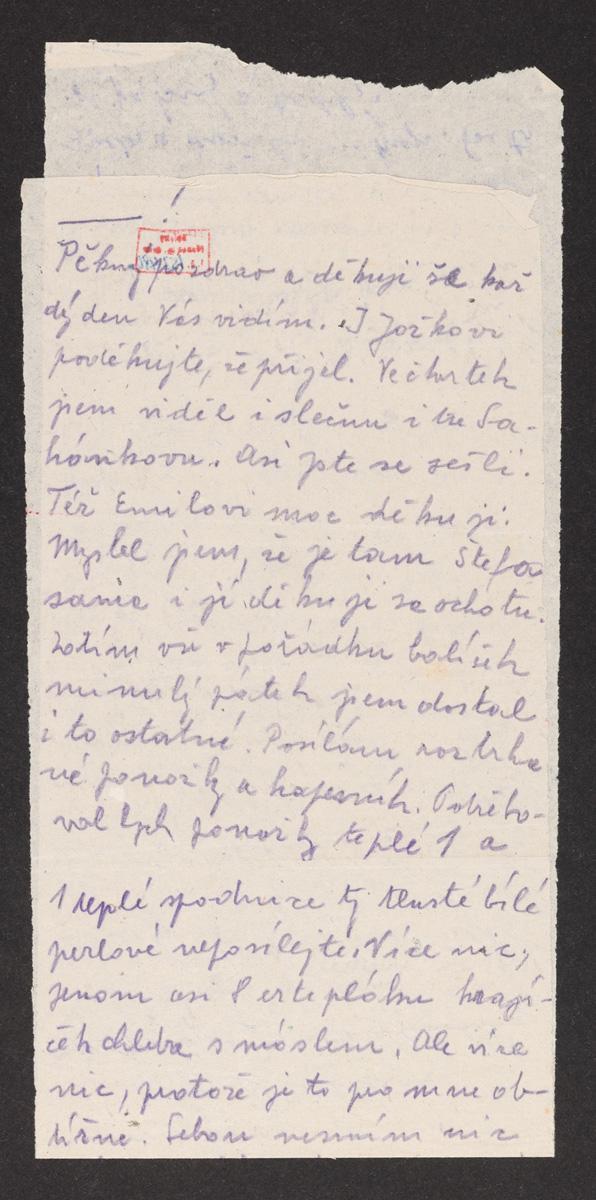 !
Pěkný pozdrav a děkuji že kaž
dý den Vás vidím. I Jožkovi
poděkujte, že přijel. Ve čtvrtek
jsem viděl i slečnu i
Asi jste se sešli.
Též Emilovi moc děkuji.
Myslel jsem, že je tam Štefa
sama i jí děkuji za ochotu.
Zatím vše v pořádku balíček
minulý pátek jsem dostal
i to ostatné. Posílám roztrha
né ponožky a kapesník. Potřebo-
val bych ponožky teplé 1 a
1 teplé spodnice ty tlusté bílé
perlové neposílejte. Více nic,
jenom asi 8 erteplóku krají-
ček chleba s móslem. Ale více
nic, protože je to pro mne ob-
tížné. Sebou nesmím nic